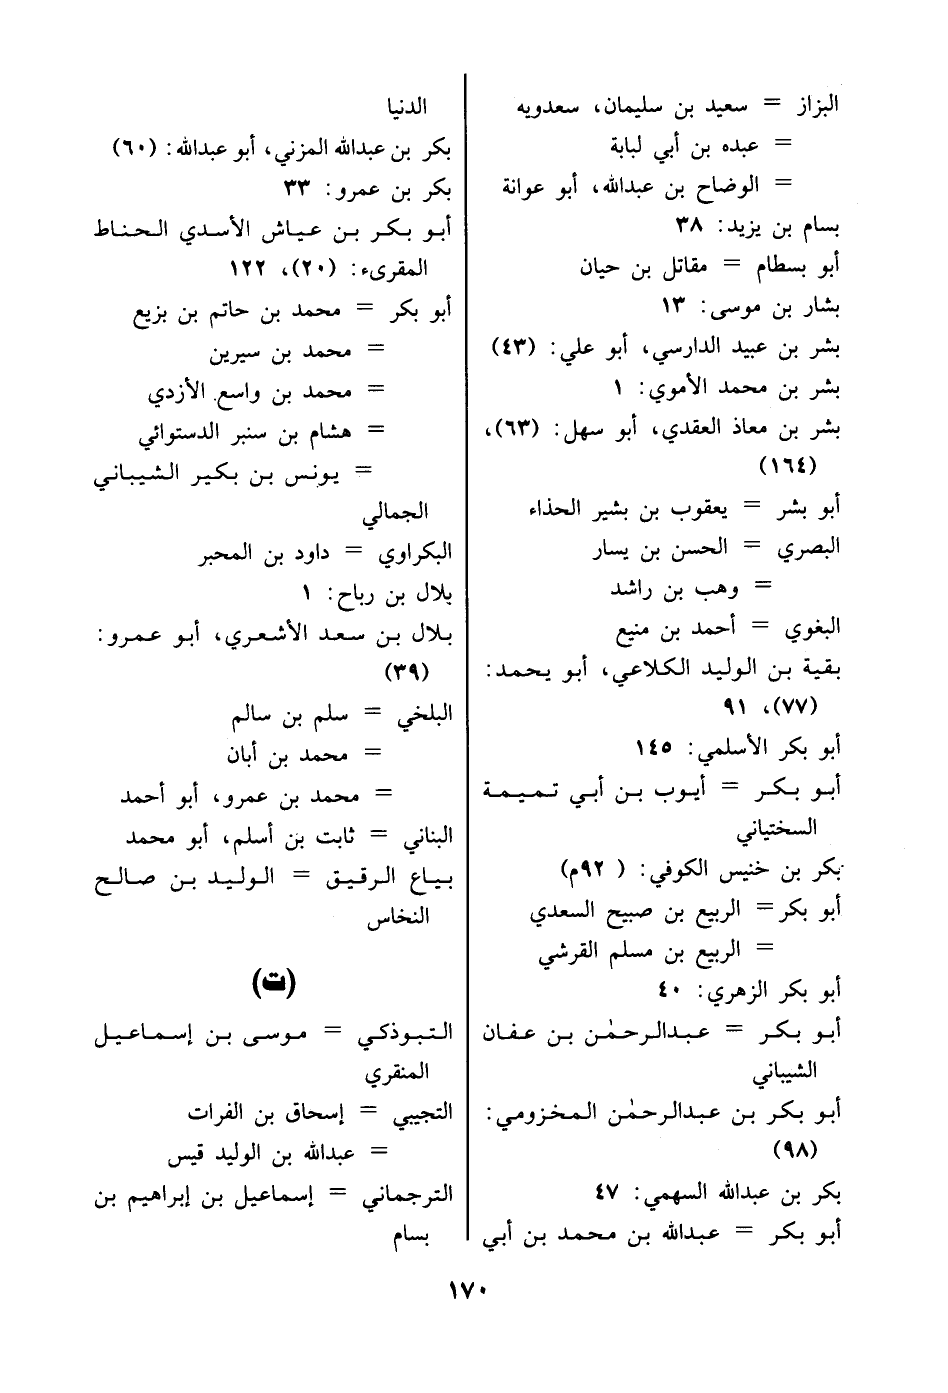 البزاز = سعيد بن سليمان، سعدويه
= عبده بن أبي لبابة
= الوضاح بن عبدالله، أبو عوانة
بسام بن يزيد: ٣٨
أبو بسطام = مقاتل بن حيان
بشار بن موسى: ١٣
بشر بن عبيد الدارسي، أبو علي: (٤٣)
بشر بن محمد الأموي: ١
بشر بن معاذ العقدي، أبو سهل: (٦٣)،
(١٦٤)
أبو بشر = يعقوب بن بشير الحذاء
البصري = الحسن بن يسار
= وهب بن راشد
البغوي = أحمد بن منيع
بقية بن الوليد الكلاعي، أبو يحمد:
(٧٧)، ٩١
أبو بكر الأسلمي: ١٤٥
أبو بكر = أيوب بن أبي تميمة
السختياني
بكر بن خنيس الكوفي: ( ٩٢م)
أبو بكر = الربيع بن صبيح السعدي
= الربيع بن مسلم القرشي
أبو بكر الزهري: ٤٠
أبو بكر = عبدالرحمٰن بن عفان
الشيباني
أبو بكر بن عبدالرحمٰن المخزومي:
(٩٨)
بكر بن عبدالله السهمي: ٤٧
أبو بكر = عبدالله بن محمد بن أبي
الدنيا
بكر بن عبدالله المزني، أبو عبدالله: (٦٠)
بكر بن عمرو: ٣٣
أبو بكر بن عياش الأسدي الحناط
المقرىء: (٢٠)، ١٢٢
أبو بكر = محمد بن حاتم بن بزيع
= محمد بن سيرين
= محمد بن واسع الأزدي
= هشام بن سنبر الدستوائي
= يونس بن بكير الشيباني
الجمالي
البكراوي = داود بن المحبر
بلال بن رباح: ١
بلال بن سعد الأشعري، أبو عمرو:
(٣٩)
البلخي = سلم بن سالم
= محمد بن أبان
= محمد بن عمرو، أبو أحمد
البناني = ثابت بن أسلم، أبو محمد
بياع الرقيق = الوليد بن صالح
النخاس
(ت)
التبوذكي = موسى بن إسماعيل
المنقري
التجيبي = إسحاق بن الفرات
= عبدالله بن الوليد قيس
الترجماني = إسماعيل بن إبراهيم بن
بسام
١٧٠